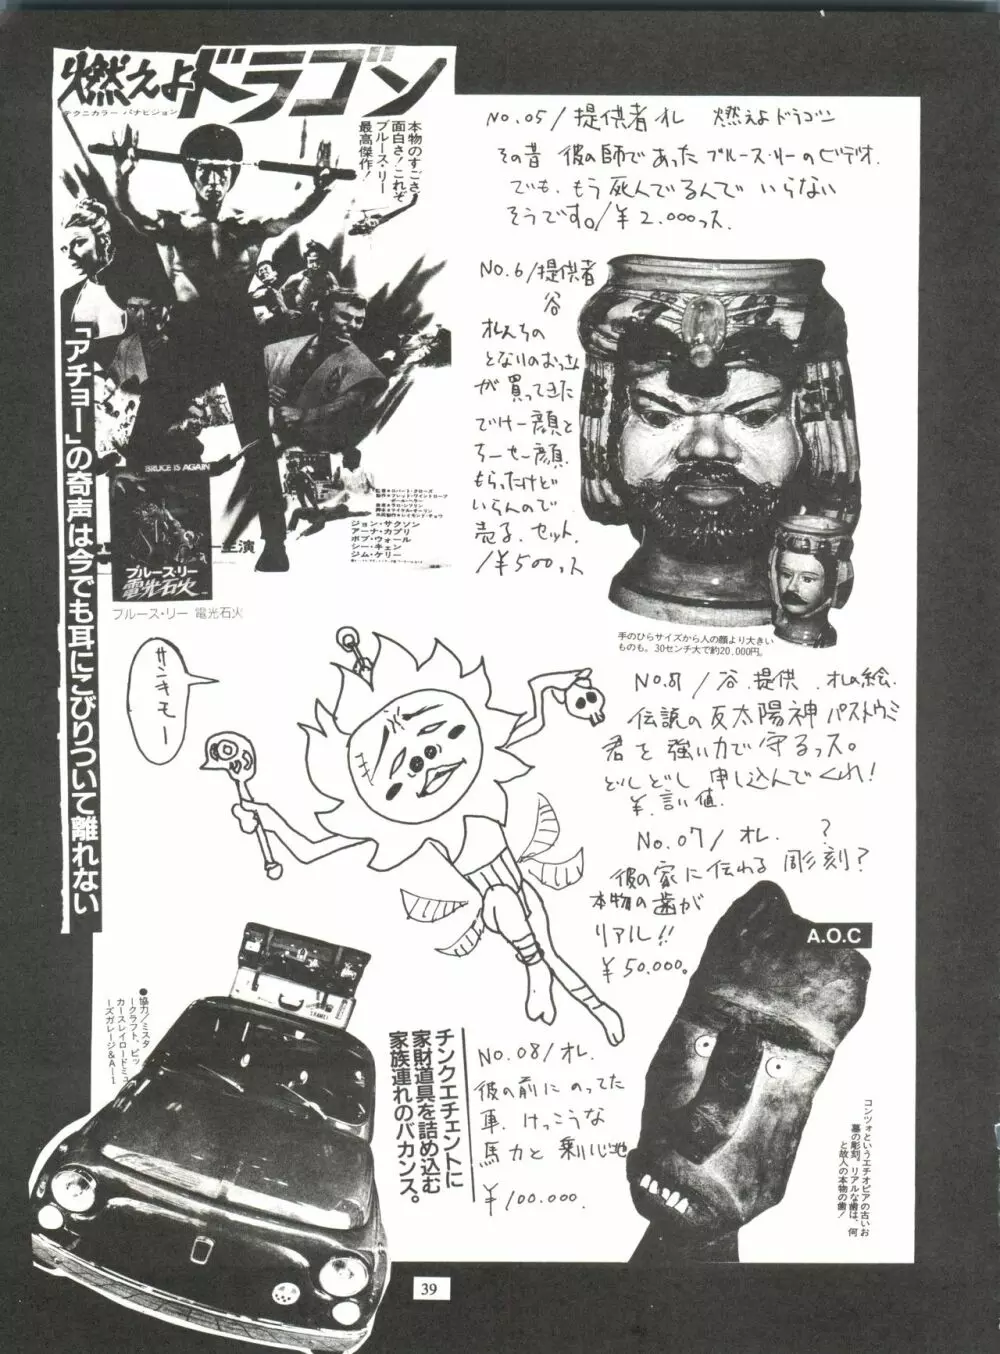 燃えよドラゴン
テクニカラー パナビジョン
本物のすごさ
面白さ!これぞ
ブルース・リー
最高傑作!
「アチョー」の奇声は今でも耳にこびりついて離れない
BRUCE IS AGAIN
ブルース・リー
電光石火
主演
ジョン・サクソン
アーナ・カプリ
ボブ・ウォール
シー・キェン
ジム・ケリー
ブルース・リー 電光石火
No.05/提供者オレ 燃えよドラゴン
その昔 彼の師であったブルース・リーのビデオ.
でも、もう死んでるんで いらない
そうです。/¥2.000っス.
No.6/提供者
谷
オレんちの
となりのおっさん
が買ってきた
でけー顔と
ちーせー顔.
もらったけど
いらんので
売る.セット.
/¥500っス
手のひらサイズから人の顔より大きい
ものも。30センチ大で約20,000円。
サンキモー
No.81/谷.提供.オレの絵.
伝説の反太陽神パストウミ
君を強い力で守るっス。
どしどし申し込んでくれ!
¥.言い値.
No.07/オレ.
彼の家に伝わる彫刻??
本物の歯が
リアル!!
¥50.000。
A.O.C
コンツォというエチオピアの古いお
墓の彫刻。リアルな歯は、何
と故人の本物の歯!
●協力/ミスタ
ークラフト、ビッ
カースレイロードミュ
ーズガレージ&A-1
チンクエチェントに
家財道具を詰め込む
家族連れのバカンス。
No.08/オレ.
彼の前にのってた
車.けっこうな
馬力と乗り心地
¥100.000.
39